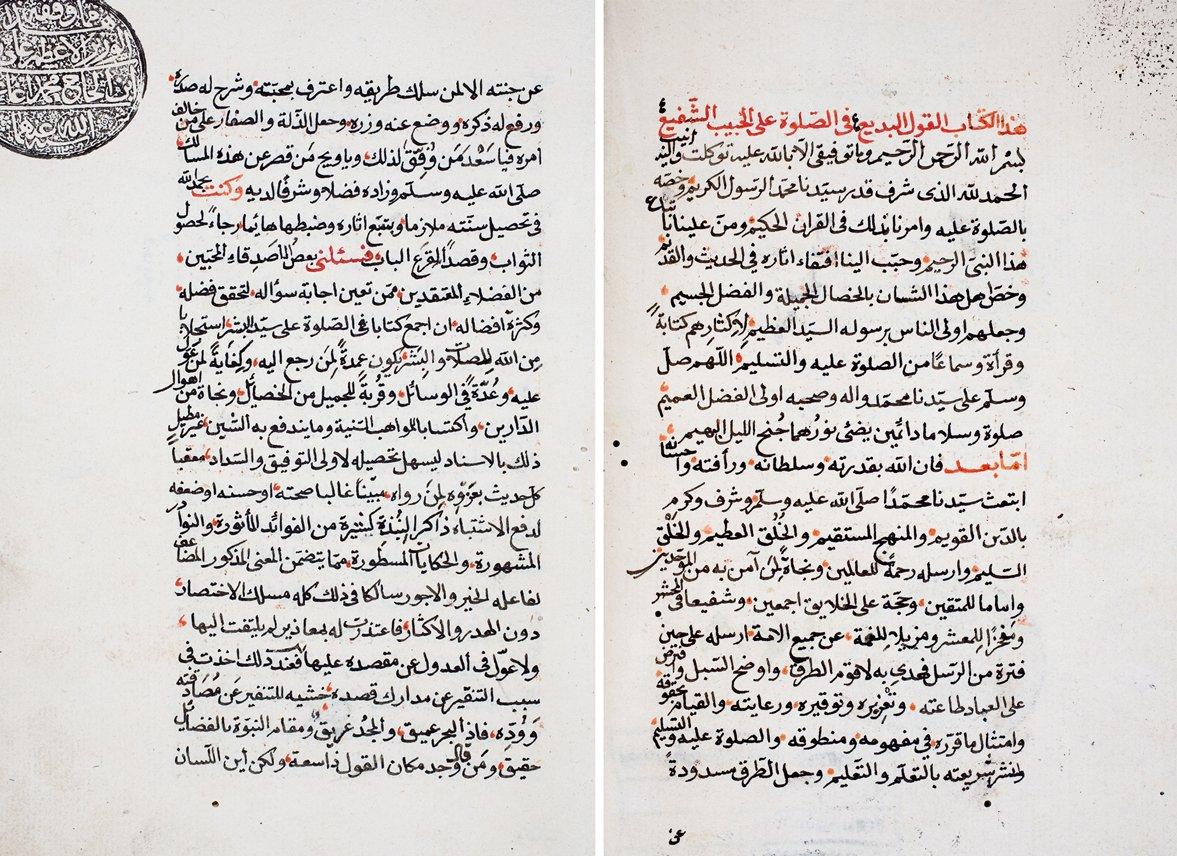 هذا الكتاب القول البديع في الصلوة على الحبيب الشفيع
بسم الله الرحمن الرحيم وما توفيقي الا بالله عليه توكلت واليه انيب
الحمد لله الذى شرف قدر سيدنا محمد الرسول الكريم وخصه
بالصلوة عليه وامرنا بذلك فى القران الحكيم ومن علينا باتباع
هذا النبى الرحيم وحبب الينا اقتفاء اثاره فى الحديث والقديم
وخص اهل هذا الشان بالخصال الجميلة والفضل الجسيم
وجعلهم اولى الناس برسوله السيد العظيم لاكثارهم كتابةً
وقرأة وسماعًا من الصلوة عليه والتسليم اللهم صل
وسلم على سيدنا محمد واله وصحبه اولى الفضل العميم
صلوة وسلاما دائمين يضئ نورهما جُنح الليل البهيم
اما بعد فان الله بقدرته وسلطانه ورأفته واحسانه
ابتعث سيدنا محمدًا صلى الله عليه وسلم وشرف وكرم
بالدين القويم والمنهج المستقيم والخُلق العظيم والخَلْق
السليم وارسله رحمة للعالمين ونجاةً لمن آمن به من الموحدين
واماما للمتقين وحجة على الخلايق اجمعين وشفيعا فى المحشر
ومفخرًا للمعشر ومزيلا للغمة عن جميع الامة ارسله على حين
فترة من الرسل فهدى به لاقوم الطرق واوضح السبل وافترض
على العباد طاعته وتعزيره وتوقيره ورعايته والقيام بحقوقه
وامتثال ما قرره فى مفهومه ومنطوقه والصلوة عليه والتسليم
ونشر شريعته بالتعلم والتعليم وجعل الطرق مسدودةً
عن
عن جنته الا لمن سلك طريقه واعترف بمحبته وشرح له صدره
ورفع له ذكره ووضع عنه وزره وجعل الذلة والصغار على من خالف
امره فيا سَعْد مَن وُفِّق لذلك وياويح مَن قصر عن هذه المسالك
صلى الله عليه وسلم وزاده فضلا وشرفا لديه وكنت بحمد الله
فى تحصيل سنته ملازما وبتتبع اثاره وضبطها هايما رجاءً لحصول
الثواب وقصدًا لقرع الباب فسئلنى بعض الاصدقاء المحبين
من الفضلاء المعتقدين ممن تعين اجابة سؤاله لتحقق فضله
وكثرة افضاله ان اجمع كتابا فى الصلوة على سيد البشر استجلابا
مِن الله للصلات والبشر يكون عمدةً لمن رجع اليه وكفايةً لمن عَوّل
عليه وعُدّة فى الوسائل وقُربةً للجميل من الخصائل ونجاة من اهوال
الدارين واكتسابا للمواهب السنية وما يندفع به الشين غير مطيل
ذلك بالاسناد ليسهل تحصيله لاولى التوفيق والسداد معقبا
كل حديث بعزوه لمن رواه مبينا غالبا صحته او حسنه او ضعفه
لدفع الاشتباه ذاكرا لنُبذة كبيرة من الفوائد المأثورة والنوادر
المشهورة والحكايات المسطورة مما يتضمن المعنى المذكور المضاعف
لفاعله الخير والاجور سالكا فى ذلك كله مسلك الاختصار
دون الهدر والاكثار فاعتذرت له بمعاذير لم يلتفت اليها
ولا عوّل فى العدول عن مقصده عليها فعند ذلك اخذت فى
سبب التنقير عن مدارك قصده خشيه للتنفير عن مُصَادقته
وَوُدِّه فاذ البحر عميق والمجد غريق ومقام النبوة بالفضائل
حقيق ومَن وجد مكان القول ذا سعة قال ولكن اين اللسان